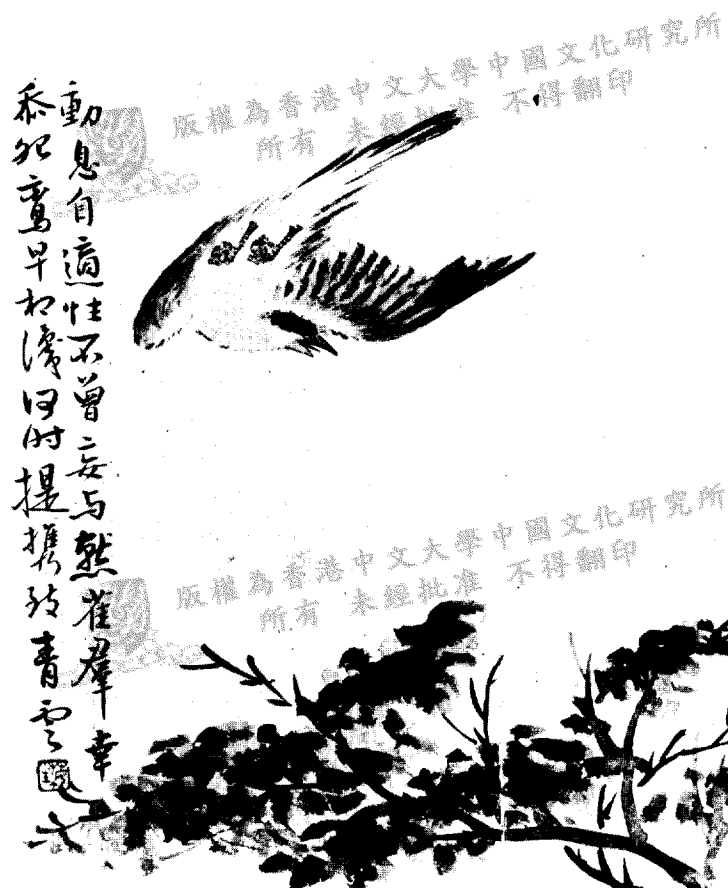 版權為香港中文大學中國文化研究所
所有 未經批准 不得翻印
動息自適性不曾妄与燕雀羣幸
忝鵷鸞早相識何时提攜致青雲
版權為香港中文大學中國文化研究所
所有 未經批准 不得翻印